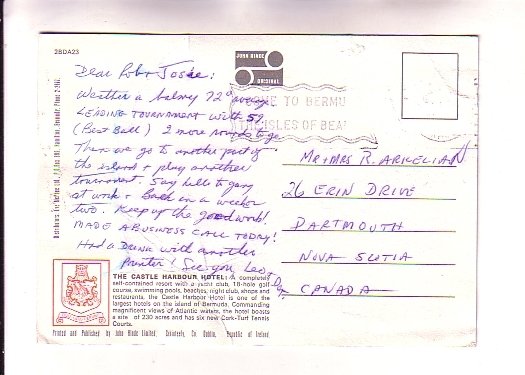 2BDA23
JOHN HINDE
ORIGINAL
Dear Rob + Josie:
Weather a balmy 72° average
LEADING TOURNAMENT with 59.
(Best Ball) 2 more rounds to go
Then we go to another part of
the island + play another
tournament. Say hello to gang
at work + Back in a week or
two. Keep up the good work!
MADE A BUSINESS CALL TODAY!
Had a Drink with another
Printer! See you,
E TO BERMU
ISLES OF BEA
Mr + Mrs R. ARKELIAN
26 ERIN DRIVE
DARTMOUTH
NOVA SCOTIA
CANADA
THE CASTLE HARBOUR HOTEL: A completely
self-contained resort with a yacht club, 18-hole golf
course, swimming pools, beaches, night club, shops and
restaurants, the Castle Harbour Hotel is one of the
largest hotels on the island of Bermuda. Commanding
magnificent views of Atlantic waters, the hotel boasts
a site of 230 acres and has six new Cork-Turf Tennis
Courts.
Printed and Published by John Hinde Limited, Co. Dublin, Republic of Ireland